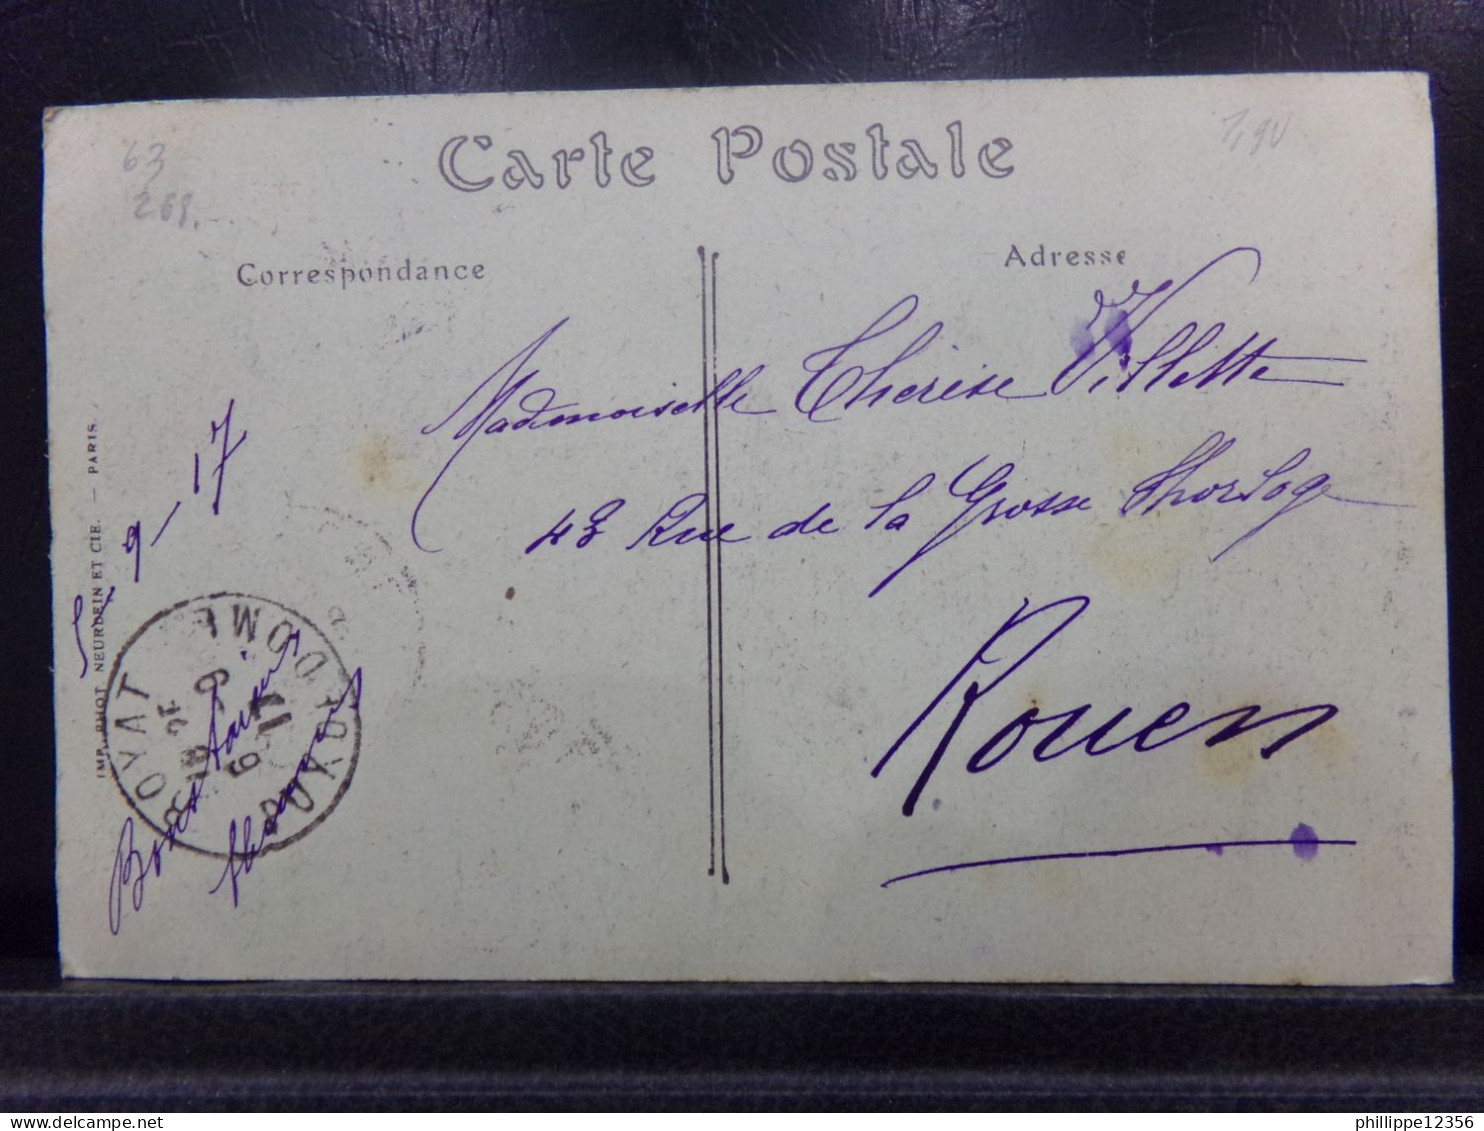 63
268.
Carte Postale
Correspondance
Adresse
Mademoiselle Thérèse Villette
43 Rue de la Grosse Horloge
Rouen
9-17
Bons baisers
IMP. PHOT. NEURDEIN ET CIE. — PARIS.
ROYAT
PUY DE DOME
phillippe12356